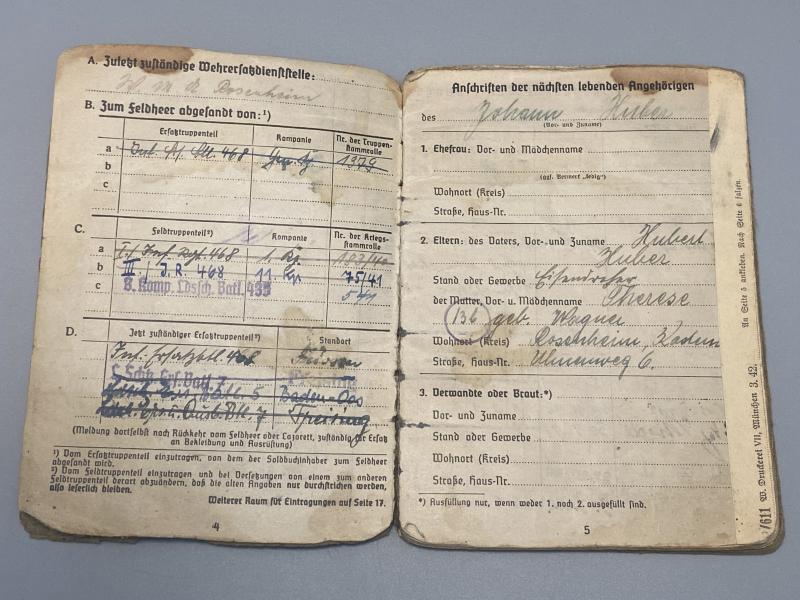 A. Zuletzt zuständige Wehrersatzdienststelle:
W. M. A. Rosenheim
B. Zum Feldheer abgesandt von:¹)
Ersatztruppenteil
Kompanie
Nr. der Truppenstammrolle
a Inf. 468 1379
b
c
C. Feldtruppenteil²)
Kompanie
Nr. der Kriegsstammrolle
a I./ Inf. Rgt. 468 1. Kp.
b III. / J.R. 468 11. Kp. 75/41
c 3. Komp. Ldsch. Batl. 435
D. Jetzt zuständiger Ersatztruppenteil²)
Standort
Inf. Ersatzbtl. 468 Füssen
Baden-Oos
Freising
(Meldung dortselbst nach Rückkehr vom Feldheer oder Lazarett, zuständig für Ersatz
an Bekleidung und Ausrüstung)
¹) Vom Ersatztruppenteil einzutragen, von dem der Soldbuchinhaber zum Feldheer
abgesandt wird.
²) Vom Feldtruppenteil einzutragen und bei Versetzungen von einem zum anderen
Feldtruppenteil derart abzuändern, daß die alten Angaben nur durchstrichen werden,
also leserlich bleiben.
Weiterer Raum für Eintragungen auf Seite 17.
4
Anschriften der nächsten lebenden Angehörigen
des Johann Huber
(Vor- und Zuname)
1. Ehefrau: Vor- und Mädchenname
(ggf. Vermerk „ledig")
Wohnort (Kreis)
Straße, Haus-Nr.
2. Eltern: des Vaters, Vor- und Zuname Hubert
Huber
Stand oder Gewerbe Eisendreher
der Mutter, Vor- u. Mädchenname Therese
136 geb. Wagner
Wohnort (Kreis) Rosenheim,
Straße, Haus-Nr. Ulmenweg 6.
3. Verwandte oder Braut:*)
Vor- und Zuname
Stand oder Gewerbe
Wohnort (Kreis)
Straße, Haus-Nr.
*) Ausfüllung nur, wenn weder 1. noch 2. ausgefüllt sind.
5
An Seite 5 ankleben. Nach Seite 6 falzen.
/611 W. Druckerei VII, München 3. 42.